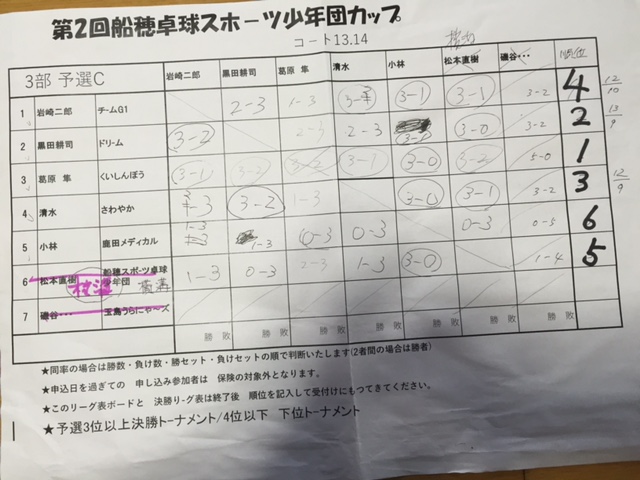 第2回船穂卓球スホーツ少年団カップ
コート13.14
3部 予選C 岩崎二郎 黒田耕司 葛原 隼 清水 小林 松本直樹 磯谷・・・ 順位
1 岩崎二郎 チームG1 2-3 1-3 3-1 3-1 3-2 4 12/10
2 黒田耕司 ドリーム 3-2 2-3 2-3 3-0 3-2 2 13/9
3 葛原 隼 くいしんぼう 3-1 3-2 3-1 3-0 3-2 5-0 1
4 清水 さわやか 1-3 3-2 1-3 3-0 3-1 3-2 3 12/9
5 小林 鹿田メディカル 1-3 1-3 0-3 0-3 0-3 0-5 6
6 松本直樹 船穂スポーツ卓球少年団 1-3 0-3 2-3 1-3 3-0 1-4 5
7 磯谷・・・ 玉島うらにゃ～ズ
勝 敗 勝 敗 勝 敗 勝 敗 勝 敗 勝 敗 勝 敗
★同率の場合は勝数・負け数・勝セット・負けセットの順で判断いたします(2者間の場合は勝者)
★申込日を過ぎての 申し込み参加者は 保険の対象外となります。
★このリーグ表ボードと 決勝リーグ表は終了後 順位を記入して受付けにもつてきてください。
★予選3位以上決勝トーナメント/4位以下 下位トーナメント